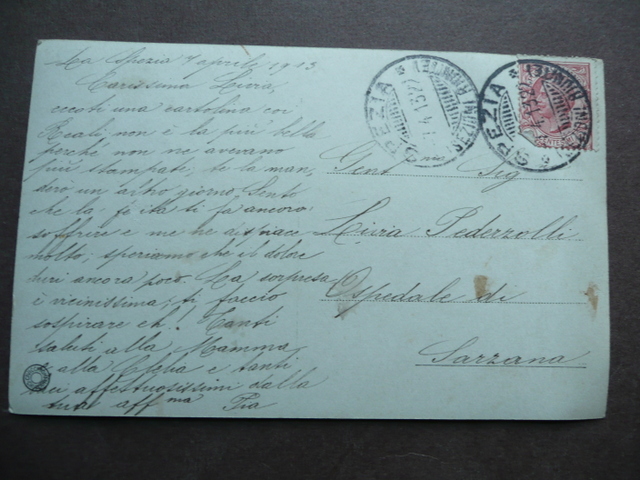 La Spezia 7 aprile 1913.
Carissima Livia,
eccoti una cartolina coi
Reali non è la più bella
perchè non ne avevano
più stampate; te la man-
derò un altro giorno. Sento
che la ferita ti fa ancora
soffrire e me ne dispiace
molto; speriamo che il dolore
duri ancora poco. La sorpresa
è vicinissima; ti faccio
sospirare eh! Tanti
saluti alla Mamma
alla e tanti
baci affettuosissimi dalla
tua aff.ma Pia
SPEZIA
7.4.13
SPEZIA
CENTES
Gent.ma Sig
Livia Pederzolli
Ospedale di
Sarzana